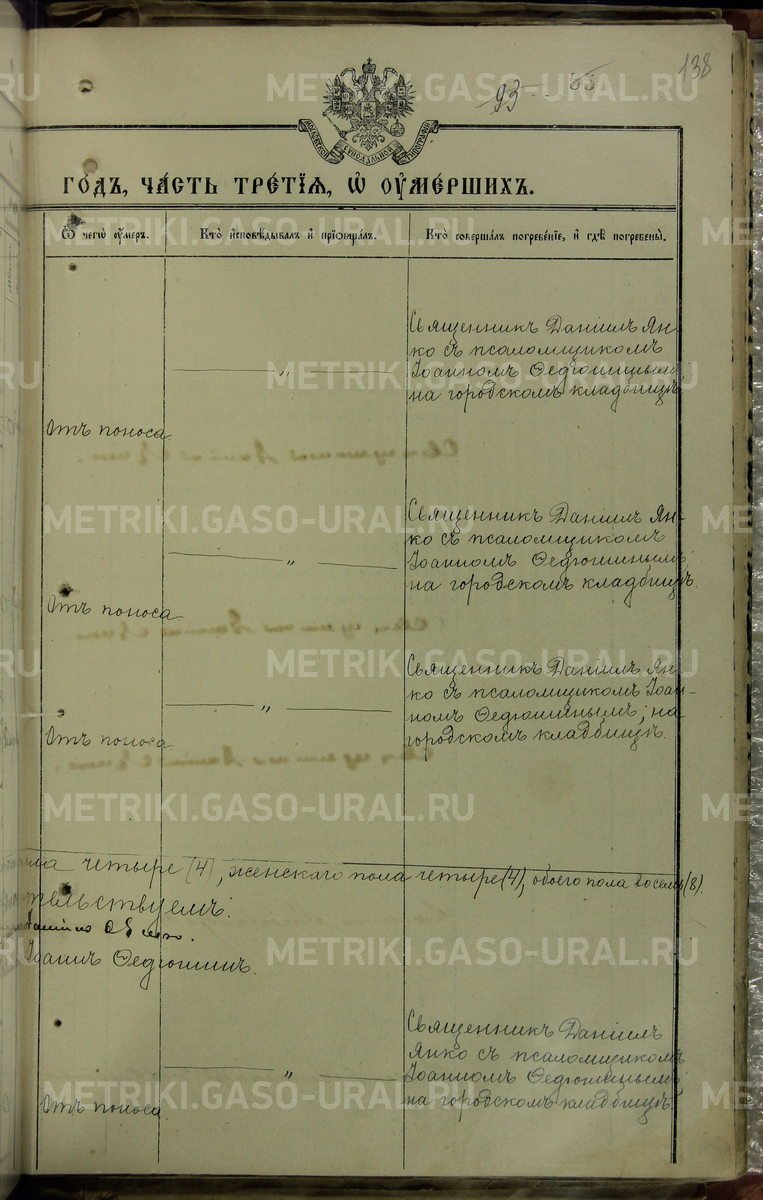 138
93
МОСКОВСКОЙ СѴНОДАЛЬНОЙ ТИПОГРАФІИ
ГОДЪ, ЧАСТЬ ТРЕТІЯ, Ѡ ОУМЕРШИХЪ.
Ѿ чегѡ оумеръ.
Кто исповѣдывалъ и пріобщалъ.
Кто совершалъ погребеніе, и гдѣ погребены.
Отъ поноса
„
Священникъ Даніилъ Ян-
ко съ псаломщикомъ
Іоанномъ Ѳедюшинымъ
на городскомъ кладбищѣ
Отъ поноса
„
Священникъ Даніилъ Ян-
ко съ псаломщикомъ
Іоанномъ Ѳедюшинымъ
на городскомъ кладбищѣ.
Отъ поноса
„
Священникъ Даніилъ Ян-
ко съ псаломщикомъ Іоан-
номъ Ѳедюшинымъ, на
городскомъ кладбищѣ.
ла четыре (4), женскаго пола четыре (4), обоего пола восемь (8).
тельствуемъ:
Іоаннъ Ѳедюшинъ.
Отъ поноса
„
Священникъ Даніилъ
Янко съ псаломщикомъ
Іоанномъ Ѳедюшинымъ
на городскомъ кладбищѣ
METRIKI.GASO-URAL.RU